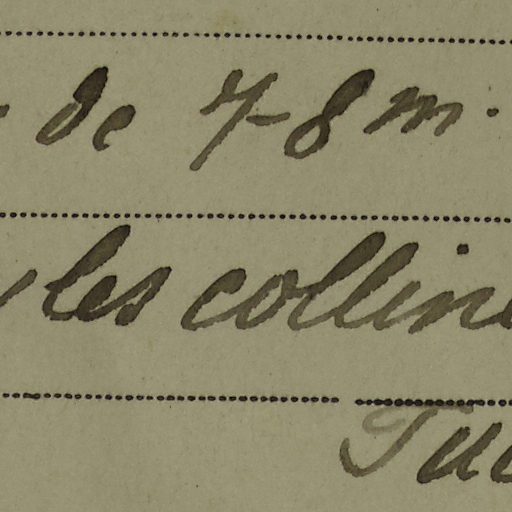 de 7-8 m.
les colline
Tuc